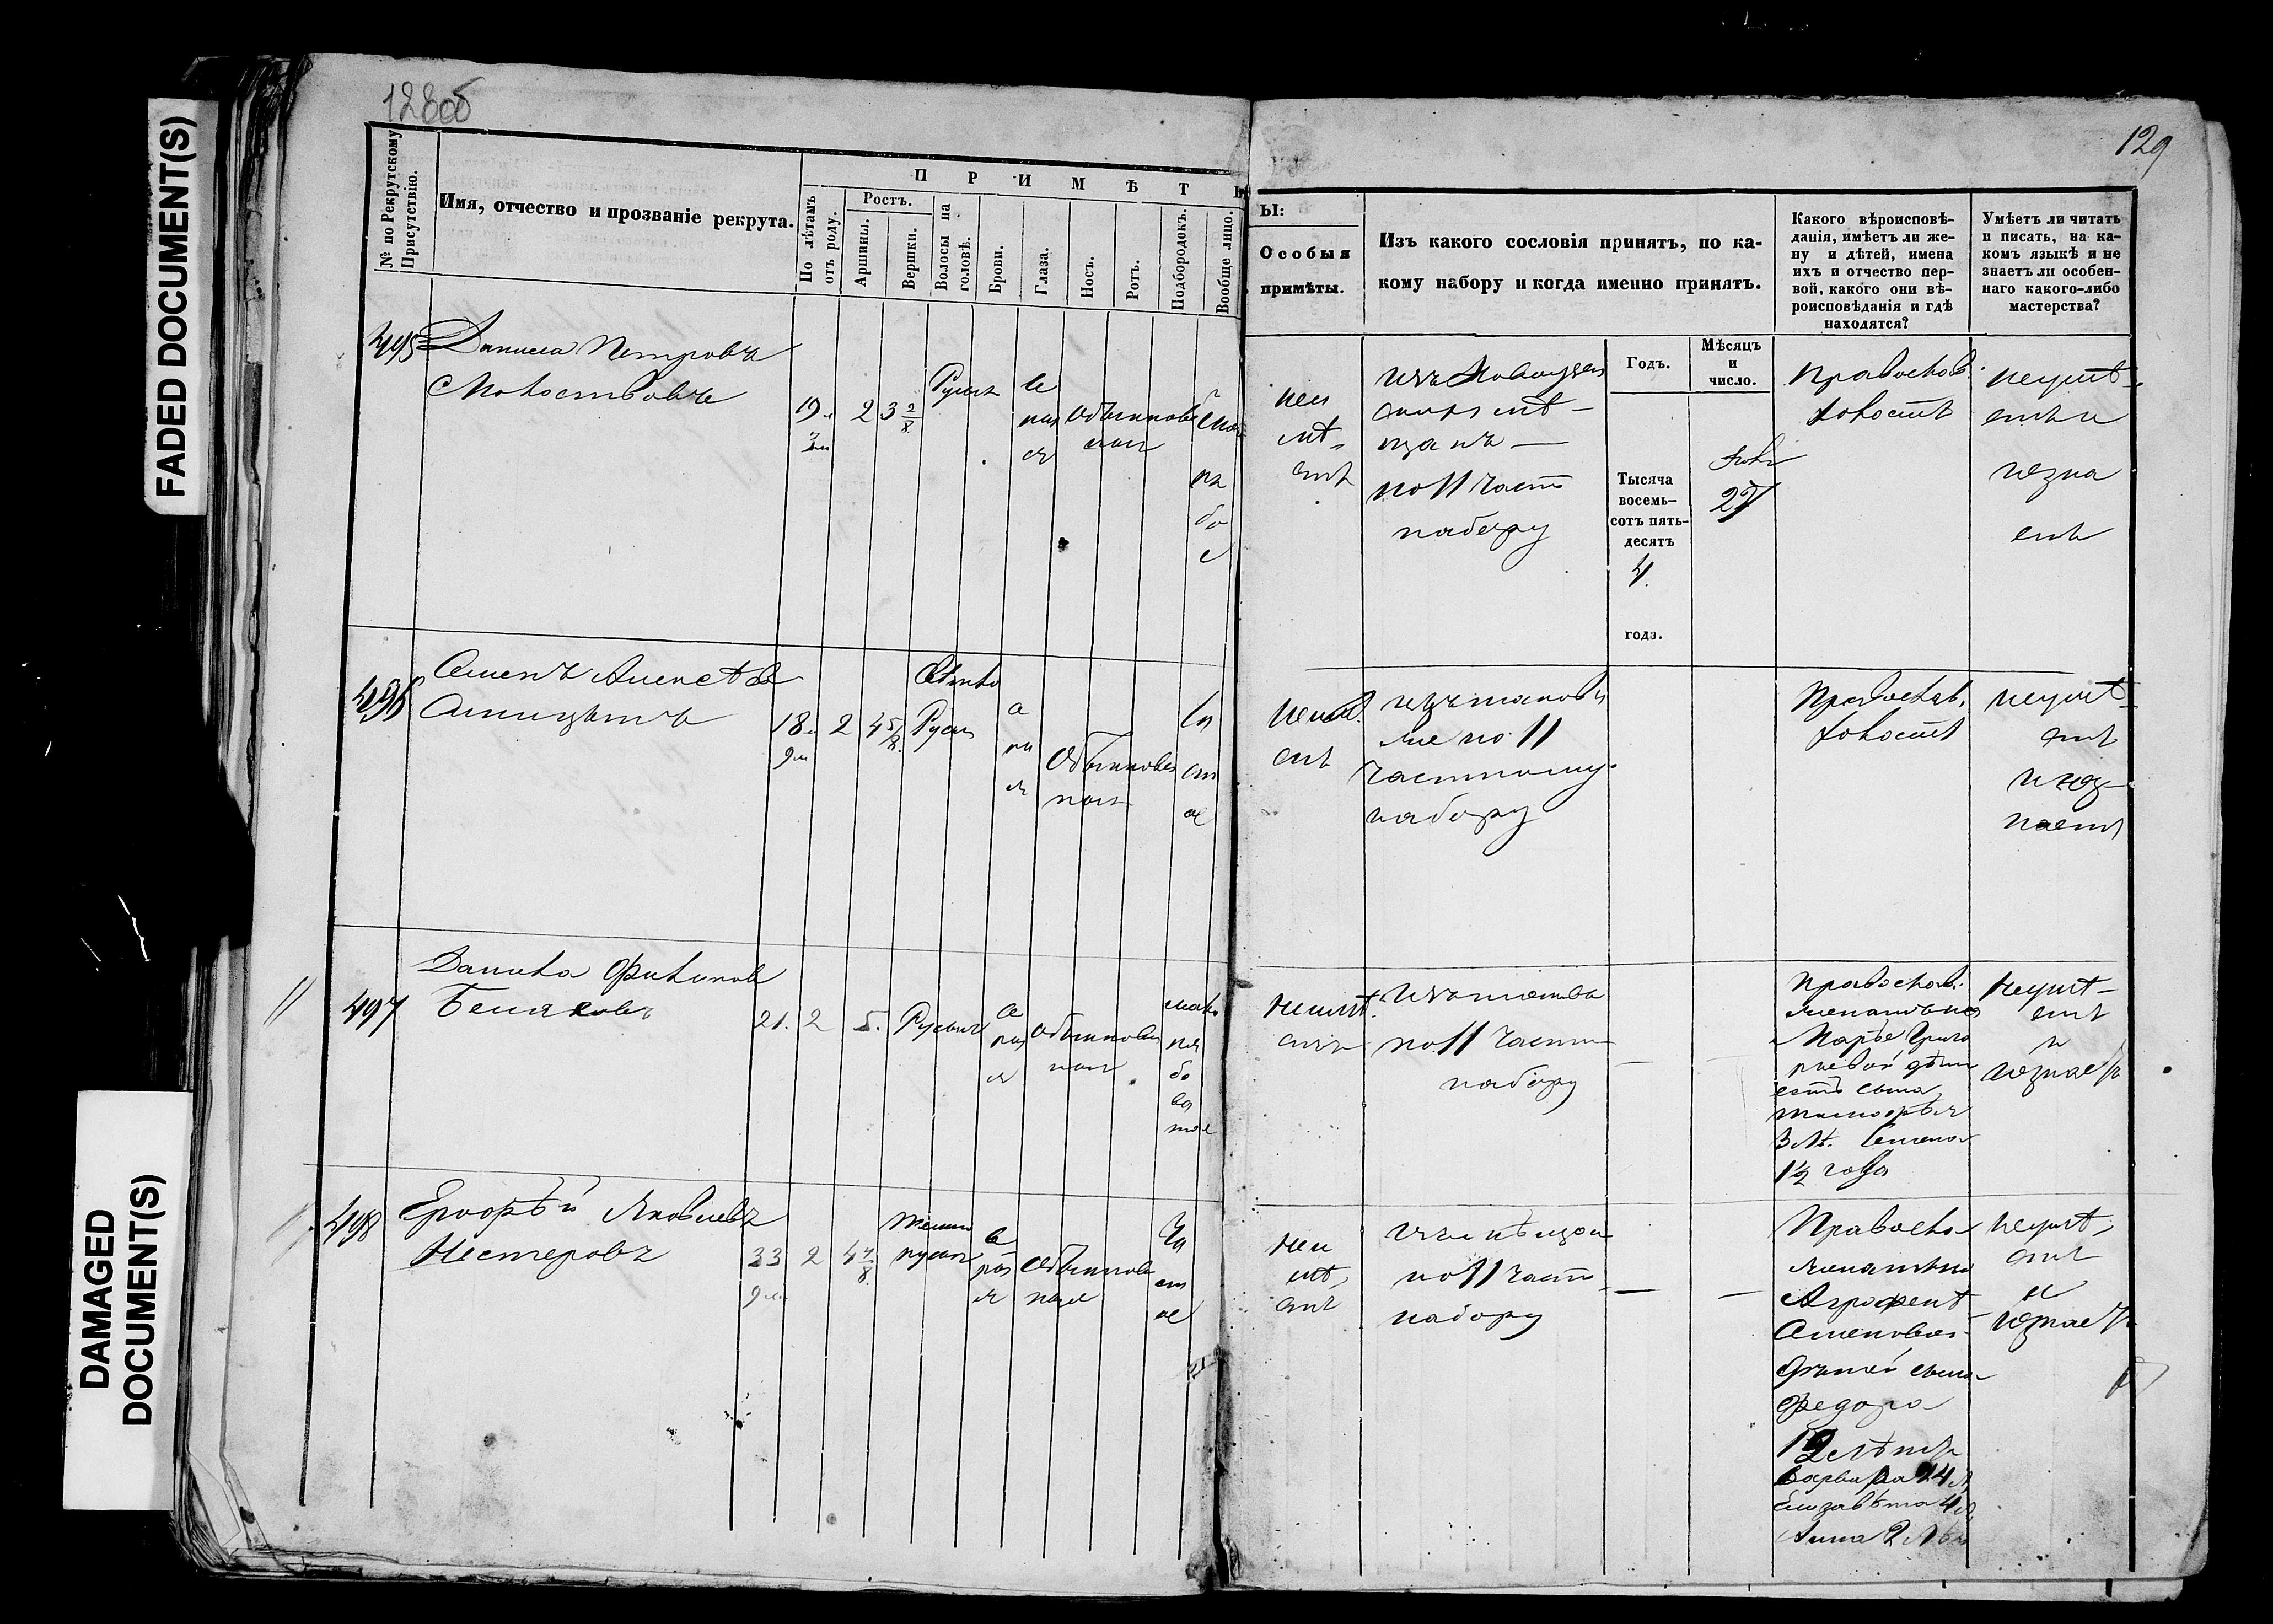 FADED DOCUMENT(S)
DAMAGED
DOCUMENT(S)
128об
129
№ по Рекрутскому
Присутствію.
Имя, отчество и прозваніе рекрута.
П Р И М Ѣ Т Ы:
По лѣтамъ
отъ роду.
Ростъ.
Аршины.
Вершки.
Волосы на
головѣ.
Брови.
Глаза.
Носъ.
Ротъ.
Подбородокъ.
Вообще лицо.
Особыя
примѣты.
Изъ какого сословія принятъ, по ка-
кому набору и когда именно принятъ.
Какого вѣроисповѣ-
данія, имѣетъ ли же-
ну и дѣтей, имена
ихъ и отчество пер-
вой, какого они вѣ-
роисповѣданія и гдѣ
находятся?
Умѣетъ ли читать
и писать, на ка-
комъ языкѣ и не
знаетъ ли особен-
наго какого-либо
мастерства?
Годъ.
Мѣсяцъ
и
число.
495
Данила Петровъ
19 л
3 м
2
3 2/8
Русые
Се
рыя
обыкновен
ные
неи
мѣ-
етъ
мѣ-
щанъ
по 11 част
набору
Тысяча
восемь-
сотъ пять-
десятъ
4.
года.
27
Православ.
холостъ
неумѣ-
етъ и
незна
етъ
496
Семенъ Алексѣевъ
18 л
9 м
2
4 5/8.
Свѣтло
Русы
Се
ры
я
Обыкновен
ные
Чи
ст
ое
Неимѣ.
етъ
по 11
частному
набору
Православ.
холостъ
неумѣ-
етъ
и нез-
наетъ
497
Данила Филиповъ
Беляковъ
21.
2
5.
Русые
Се
рыя
обыкновен
ные
Неимѣ.
етъ
по 11 частн
набору
Православ.
женатъ на
Марье Григо
рьевой дѣти
есть сына
Тимофѣя
3 лѣ. Семена
1½ года
Неумѣ-
етъ
и
незнаетъ
498
Яковлевъ
Нестеровъ
33
9 м.
2
4 4/8
темно
русые
Се
рыя
обыкновен
ные
Чи
ст
ое
Неи
мѣ-
етъ
по 11 част
набору
Правосла
женатъ на
Аграфенѣ
Семеновой
дѣтей сына
Федора
12 лѣтъ
Варвара 14 л
Елизавѣта 4 л
Анна 2 лѣ
Неумѣ-
етъ
и
незнаетъ